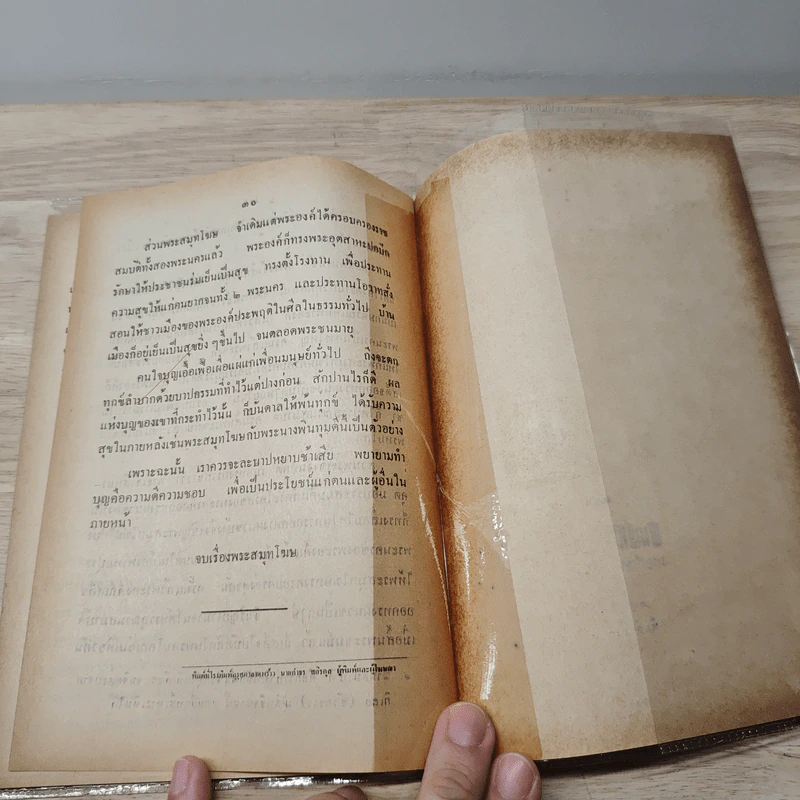 ๓๐
ส่วนพระสมุทโฆษ จำเดิมแต่พระองค์ได้ครอบครองราช
สมบัติทั้งสองพระนครแล้ว พระองค์ก็ทรงพระอุตสาหะปกปัก
รักษาให้ประชาชนร่มเย็นเป็นสุข ทรงตั้งโรงทาน เพื่อประทาน
ความสุขให้แก่คนยากจนทั้ง ๒ พระนคร และประทานโอวาทสั่ง
สอนให้ชาวเมืองของพระองค์ประพฤติในศีลในธรรมทั่วไป บ้าน
เมืองก็อยู่เย็นเป็นสุขยิ่งๆขึ้นไป จนตลอดพระชนมายุ
คนใจบุญเอื้อเฟื้อเผื่อแผ่แก่เพื่อนมนุษย์ทั่วไป ถึงจะตก
ทุกข์ลำบากด้วยบาปธรรมที่ทำไว้แต่ปางก่อน สักปานไรก็ดี ผล
แห่งบุญของเขาที่กระทำไว้นั้น ก็บันดาลให้พ้นทุกข์ ได้รับความ
สุขในภายหลังเช่นพระสมุทโฆษกับพระนางพินทุมดีนี้เป็นตัวอย่าง
เพราะฉะนั้น เราควรจะละบาปหยาบช้าเสีย พยายามทำ
บุญคือความดีความชอบ เพื่อเป็นประโยชน์แก่ตนและผู้อื่นใน
ภายหน้า
จบเรื่องพระสมุทโฆษ
ผู้พิมพ์และผู้โฆษณา